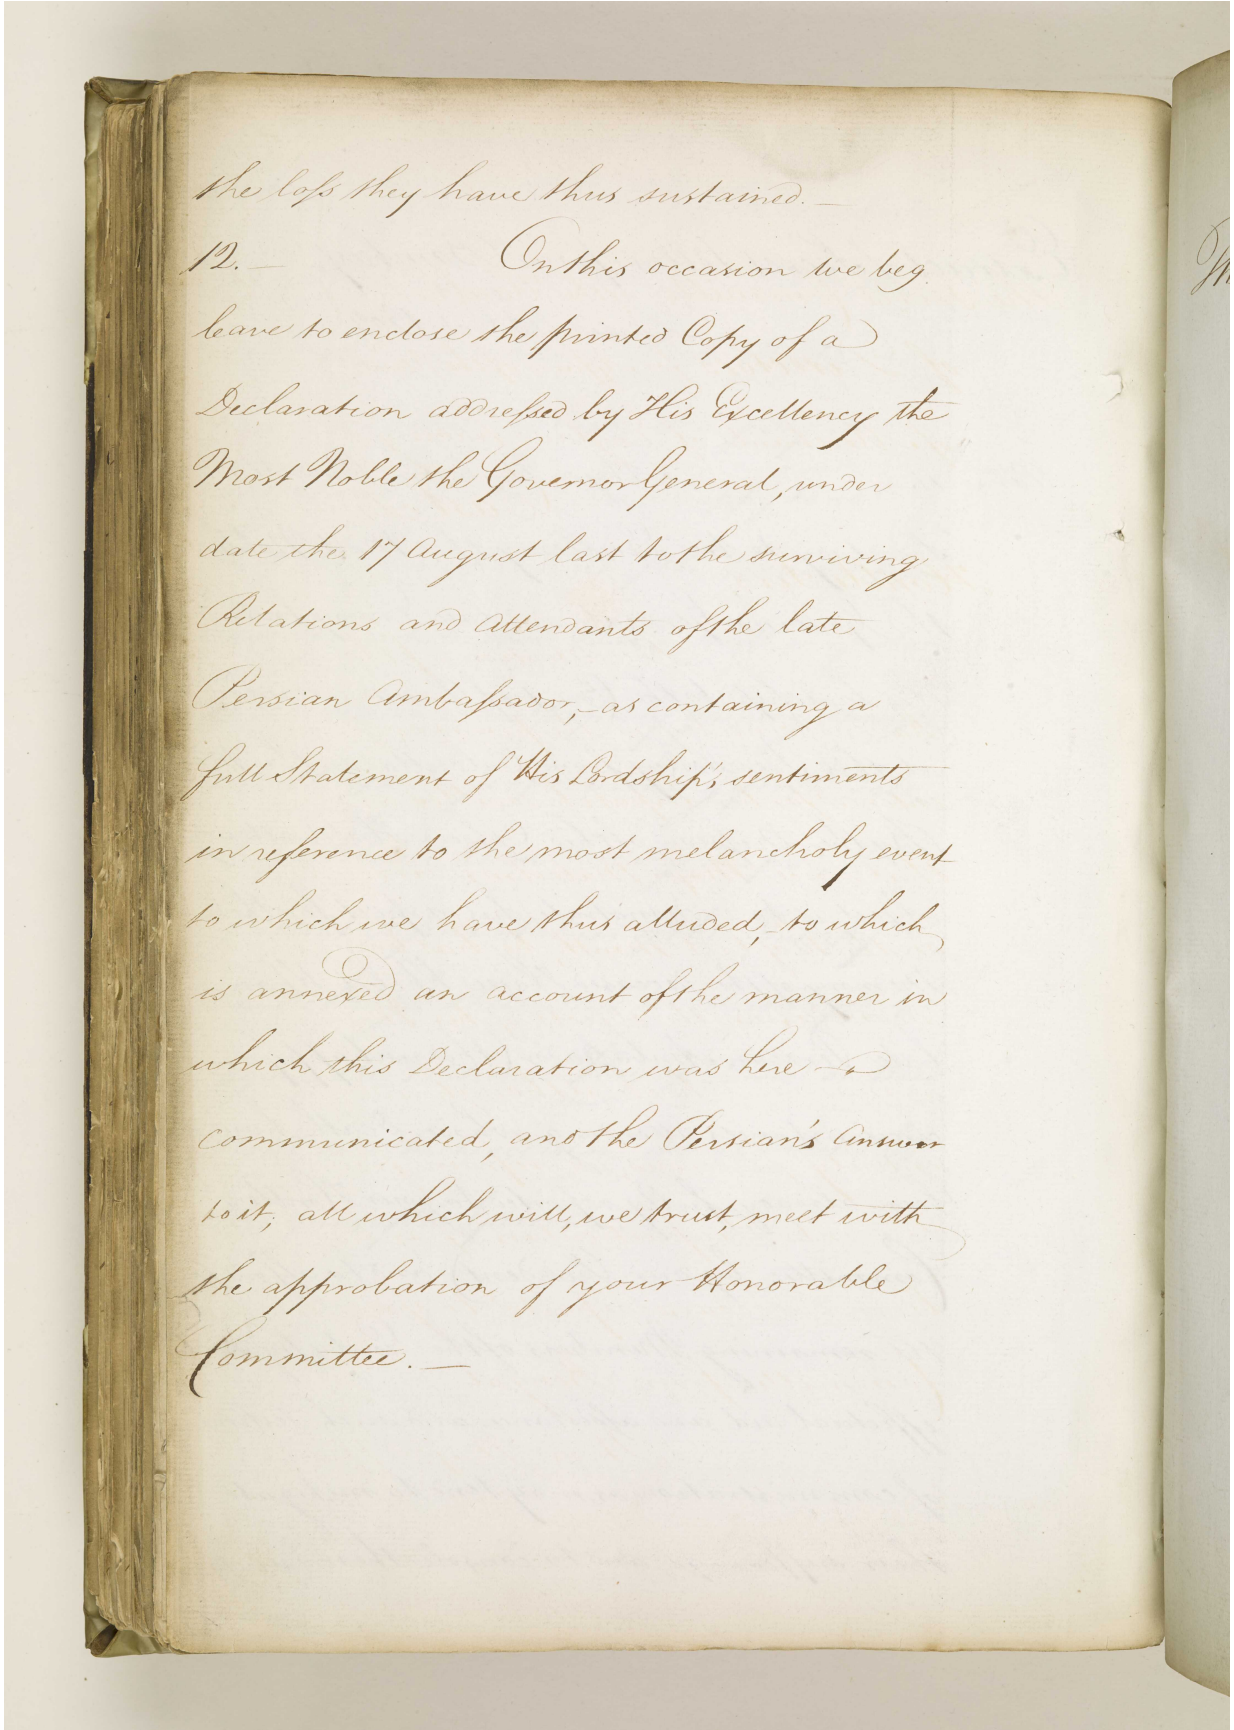 the loſs they have thus sustained. —
12. — On this occasion we beg
leave to enclose the printed Copy of a
Declaration addreſsed by His Excellency the
Most Noble the Governor General, under
date the 17 August last to the surviving
Relations and Attendants of the late
Persian Ambaſsador, – as containing a
full Statement of His Lordship's sentiments
in reference to the most melancholy event
to which we have thus alluded, – to which
is annexed an account of the manner in
which this Declaration was here –
communicated, and the Persian's Answer
to it; all which will, we trust, meet with
the approbation of your Honorable
Committee. —